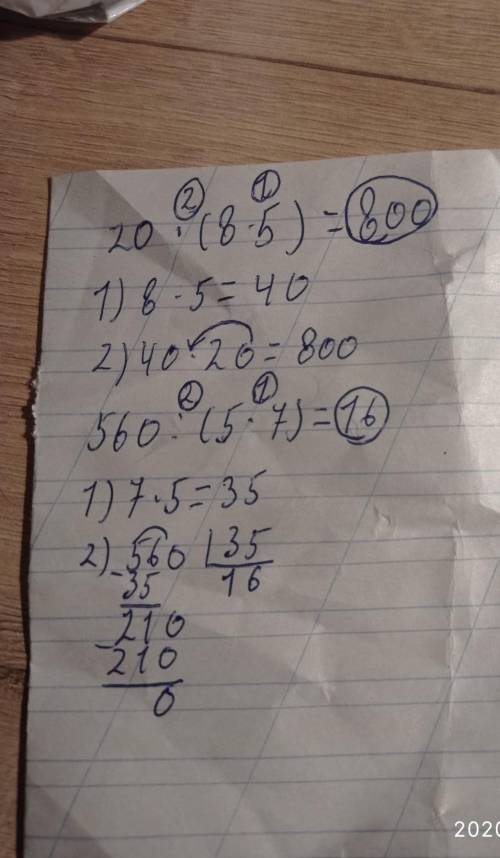 ② ①
20 · (8 · 5) = 800
1) 8 · 5 = 40
2) 40 · 20 = 800
② ①
560 : (5 · 7) = 16
1) 7 · 5 = 35
2) 560 | 35
- 35 16
210
- 210
0
2020